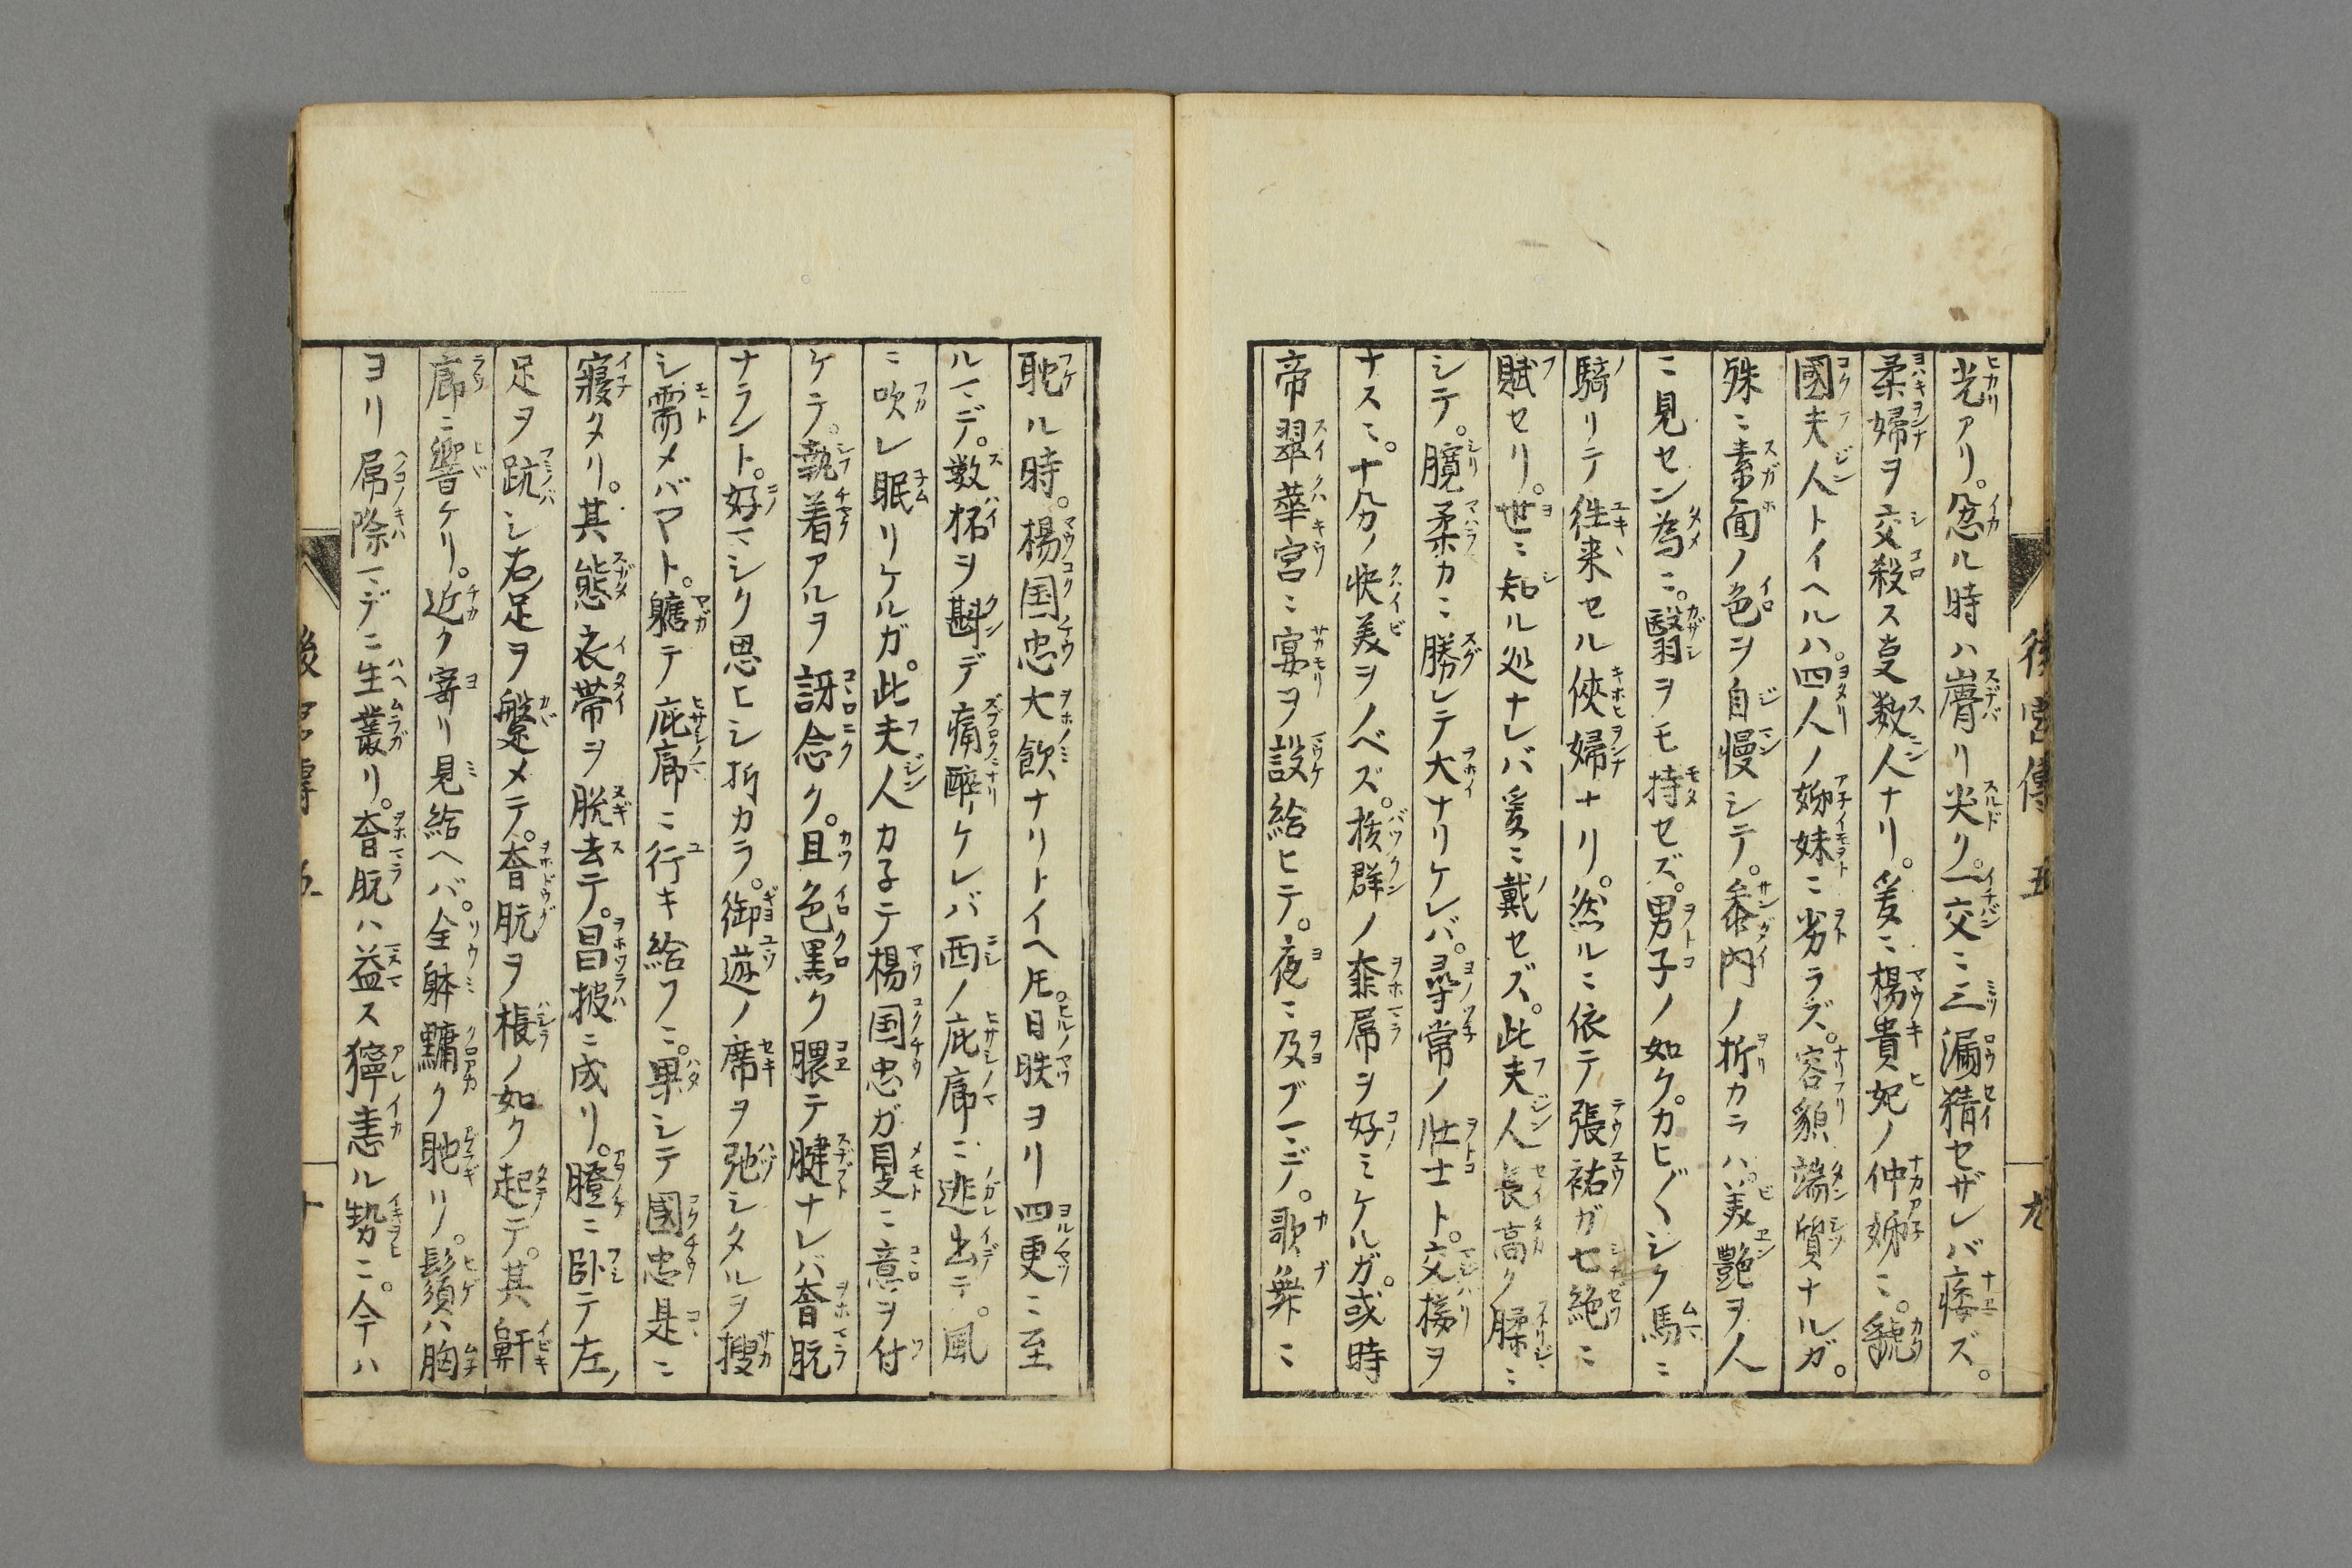 後宮傳 五 九
光アリ。忿ル時ハ膚リ尖ク。一交ニ三漏精セザレバ痿ズ。
柔婦ヲ交殺ス叓数人ナリ。爰ニ楊貴妃ノ仲姉ニ。虢
國夫人トイヘルハ。四人ノ姉妹ニ劣ラズ。容貌端質ナルガ。
殊ニ素面ノ色ヲ自慢シテ。参内ノ折カラハ。美艶ヲ人
ニ見セン為ニ。翳ヲモ持セズ。男子ノ如ク。カヒ〴〵シク馬ニ
騎リテ徃来セル俠婦ナリ。然ルニ依テ張祐ガ七絶ニ
賦セリ。世ニ知ル処ナレバ爰ニ戴セズ。此夫人長高ク腬ニ
シテ。臗柔カニ勝レテ大ナリケレバ。尋常ノ壮士ト。交接ヲ
ナスニ。十分ノ快美ヲノベズ。抜群ノ夲屌ヲ好ミケルガ。或時
帝翠華宮ニ宴ヲ設給ヒテ。夜ニ及ブマデ。歌舞ニ
耽ル時。楊国忠大飲ナリトイヘ𪜈。日昳ヨリ四更ニ至
ルマデ。数杯ヲ斟デ痛醉ケレバ西ノ庇廊ニ逃出テ。風
ニ吹レ眠リケルガ。此夫人カ子テ楊国忠ガ䀏ニ意ヲ付
ケテ。執着アルヲ訝念ク。且色黒ク腲テ腱ナレバ奮朊
ナラント。好マシク思ヒシ折カラ。御遊ノ席ヲ弛シタルヲ搜
シ需メバヤト。軈テ庇廊ニ行キ給フニ。果シテ國忠是ニ
寢タリ。其態衣帯ヲ脱去テ。昌披ニ成リ。膯ニ卧テ左ノ
足ヲ䟘シ右足ヲ盤メテ。奮朊ヲ棖ノ如ク起テ。其鼾
廊ニ響ケリ。近ク寄リ見給ヘバ。全躰黸ク肔リ。鬚ハ胸
ヨリ屌際マデニ生叢リ。奮朊ハ益ス獰恚ル勢ニ。今ハ
後宮傳 五 十